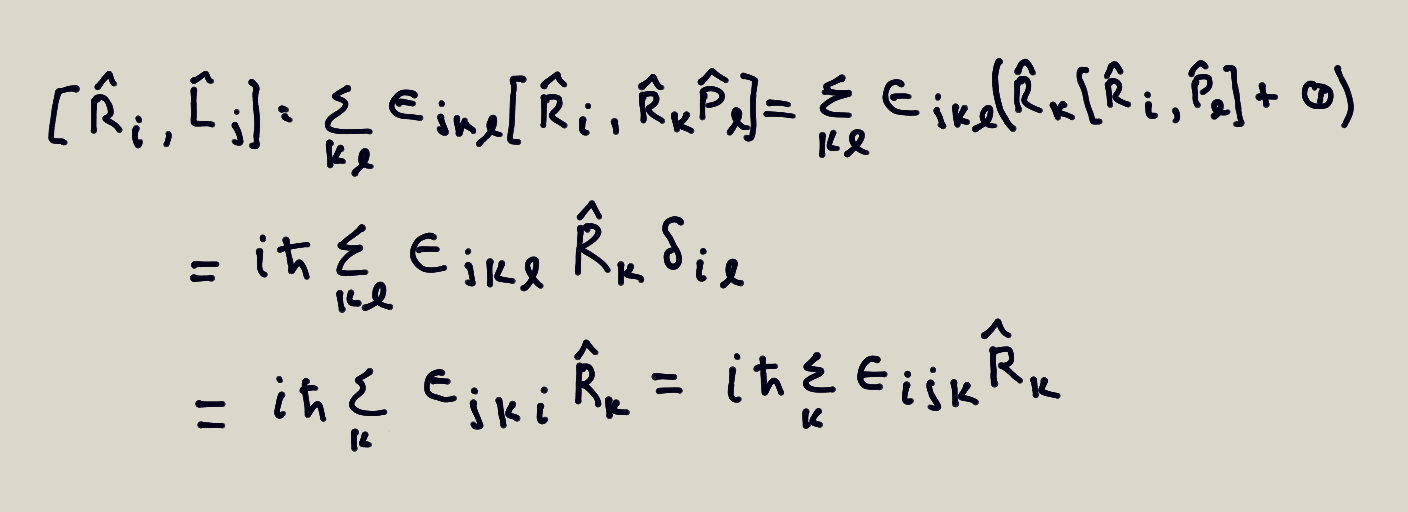 [R̂ᵢ, L̂ⱼ] = Σ_{kl} ϵ_{jkl} [R̂ᵢ, R̂ₖ P̂ₗ] = Σ_{kl} ϵ_{jkl} (R̂ₖ [R̂ᵢ, P̂ₗ] + 0)
= iℏ Σ_{kl} ϵ_{jkl} R̂ₖ δ_{il}
= iℏ Σ_{k} ϵ_{jki} R̂ₖ = iℏ Σ_{k} ϵ_{ijk} R̂ₖ